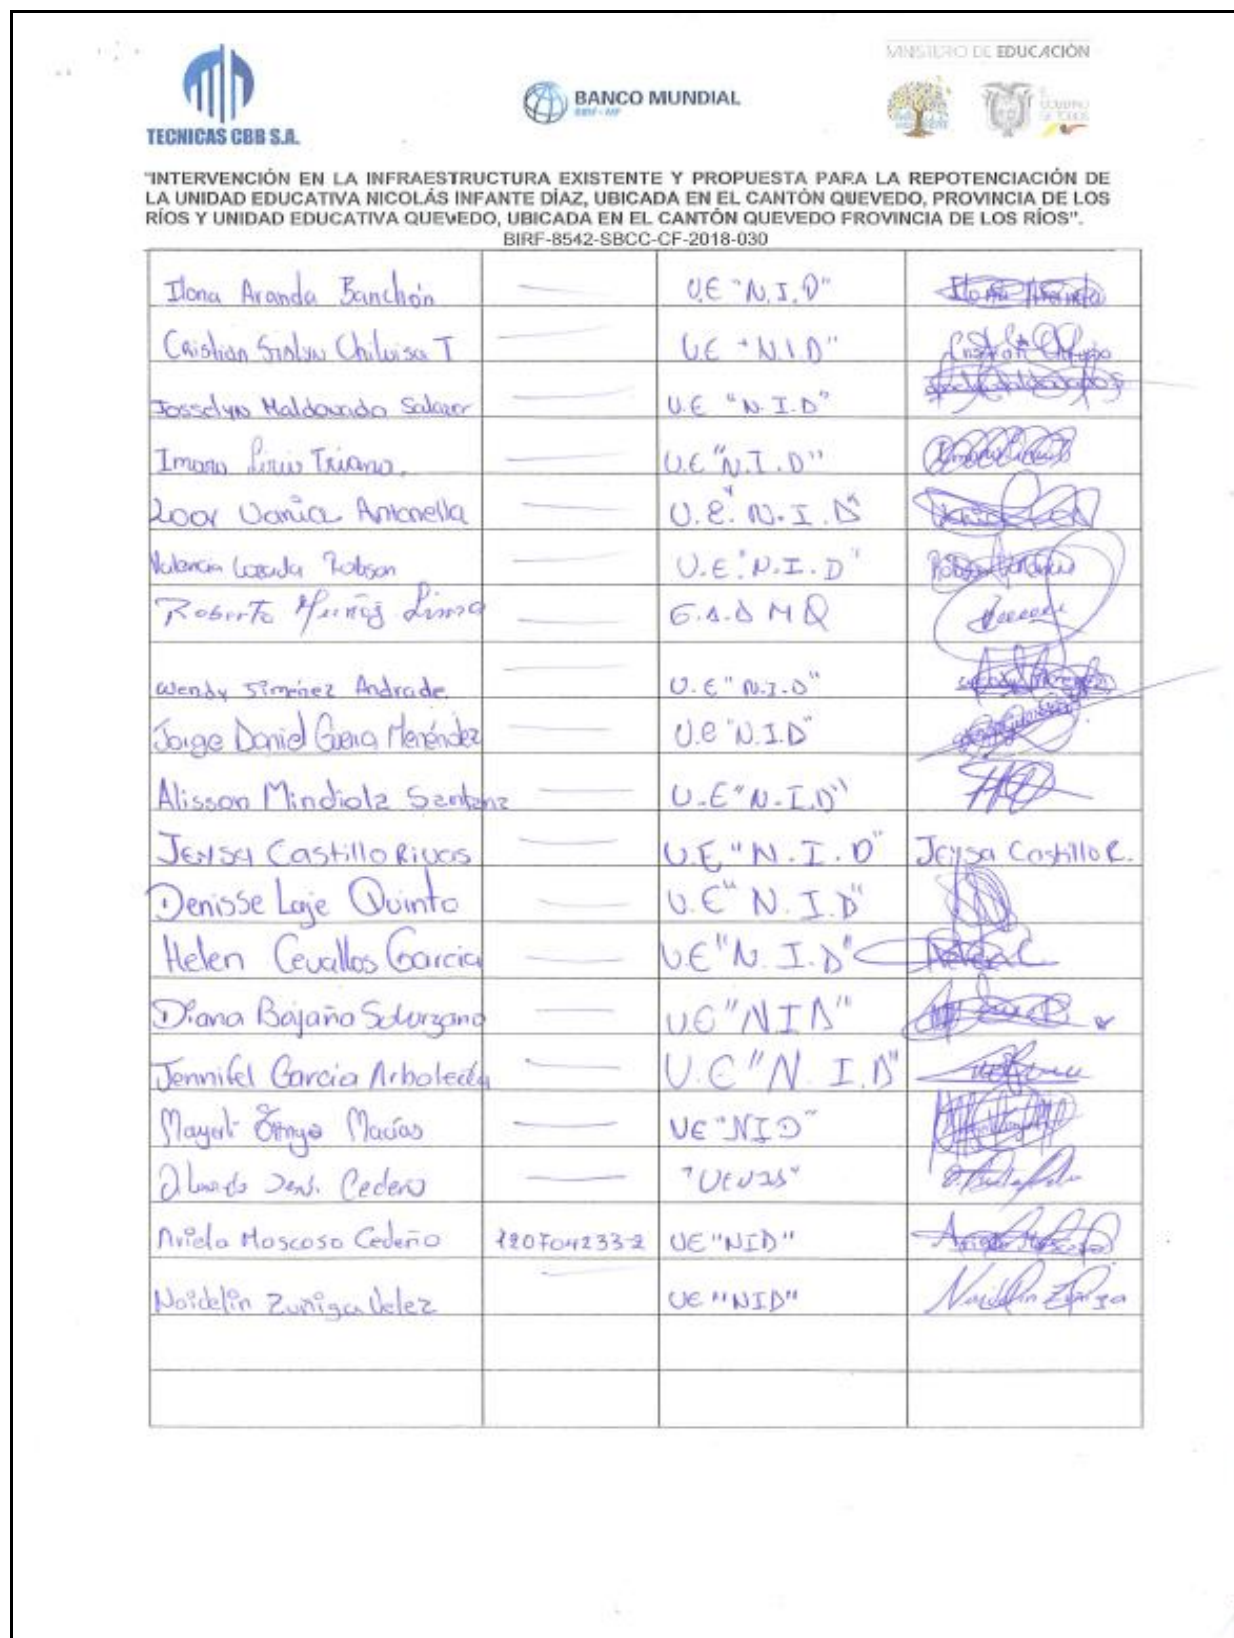 MINISTERIO DE EDUCACIÓN
TECNICAS CBB S.A.
BANCO MUNDIAL
BIRF - AIF
EL GOBIERNO DE TODOS
"INTERVENCIÓN EN LA INFRAESTRUCTURA EXISTENTE Y PROPUESTA PARA LA REPOTENCIACIÓN DE
LA UNIDAD EDUCATIVA NICOLÁS INFANTE DÍAZ, UBICADA EN EL CANTÓN QUEVEDO, PROVINCIA DE LOS
RÍOS Y UNIDAD EDUCATIVA QUEVEDO, UBICADA EN EL CANTÓN QUEVEDO PROVINCIA DE LOS RÍOS".
BIRF-8542-SBCC-CF-2018-030
Ilona Aranda Banchón — U.E "N.I.D" Ilona Aranda
Cristhian Chiluisa T — U.E "N.I.D"
Josselyn Maldonado Salazar — U.E "N.I.D"
Triana — U.E "N.I.D"
Loor Vania Antonella — U.E. "N.I.D"
Valencia Lozada Robson — U.E. "N.I.D"
Roberto Muñoz — G.A.D M Q
Wendy Jiménez Andrade — U.E "N.I.D"
Jorge Daniel Menéndez — U.E "N.I.D"
Alisson Mindiola Santana — U.E "N.I.D"
Jeysa Castillo Rivas — U.E "N.I.D" Jeysa Castillo R.
Denisse Laje Quinto — U.E "N.I.D"
Helen Cevallos Garcia — U.E "N.I.D"
Diana Bajaña Solorzano — U.E "NID"
Jennifel Garcia Arboleda — U.E "N.I.D"
Macías — UE "NID"
Cedeño —
Ariela Moscoso Cedeño 120704233-2 UE "NID"
Noidelin Zuñiga Velez — UE "NID" Zuñiga